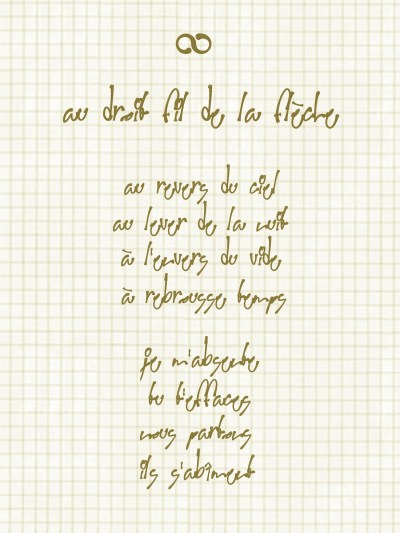 ∞
au droit fil de la flèche
au revers du ciel
au lever de la nuit
à l'envers du vide
à rebrousse temps
je m'absente
tu t'effaces
nous partons
ils s'abîment